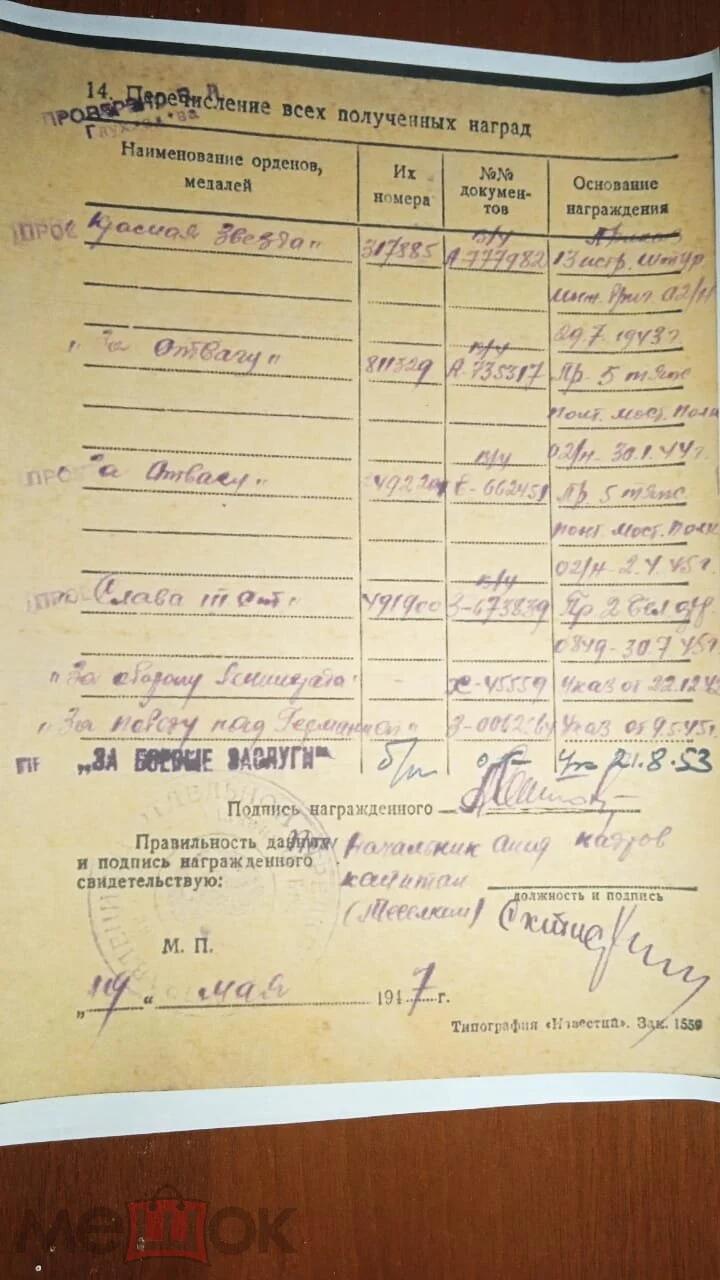 14. Перечисление всех полученных наград
ПРОВЕРЕНО
Наименование орденов, медалей
Их номера
№№ документов
Основание награждения
Красная Звезда"
317885
в/у
А-777982
Приказ
13 истр. штур
инж. бриг 02/н
29.7.1943г
"За Отвагу"
811329
в/у
А-735317
Пр. 5 тяж
понт. мост. полк
02/н-30.1.44г.
ПРОВ За Отвагу"
в/у
Е-662451
Пр. 5 тяж.
понт. мост. полк
02/н-2.4.45г.
Слава III ст"
491900
в/у
З-673839
Пр 2 Бел
049-30.7.45г.
"За оборону Ленинграда"
-
Х-45559
Указ от 22.12.42
"За победу над Германией"
Указ от 9.5.45г.
„ЗА БОЕВЫЕ ЗАСЛУГИ"
б/н
Ук 21.8.53
Подпись награжденного
Правильность данных
и подпись награжденного
свидетельствую:
Начальник кадров
капитан
должность и подпись
М. П.
„19" мая 1947 г.
Типография «Известий». Зак. 1559
мешок